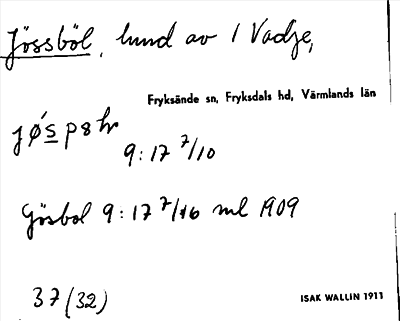 Jössböl, lund av 1 Vadje,
Fryksände sn, Fryksdals hd, Värmlands län
9:17 7/10
Gösbol 9:17 7/16 ml 1909
37 (32)
ISAK WALLIN 1911